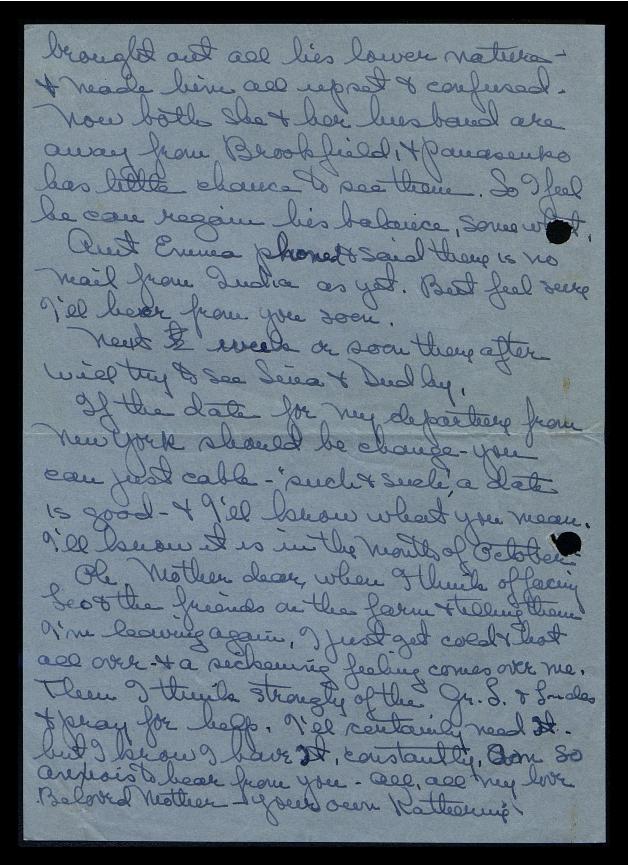 brought out all his lower nature -
& made him all upset & confused.
Now both she & her husband are
away from Brookfield, & Panasenko
has little chance to see them. So I feel
he can regain his balance, somewhat.
Aunt Emma phoned & said there is no
mail from India as yet. But feel sure
I'll hear from you soon.
Next week or soon there after
will try to see Sina & Dudley.
If the date for my departure from
New York should be change - you
can just cable - "such & such" a date
is good - & I'll know what you mean.
I'll know it is in the month of October.
Oh Mother dear, when I think of facing
Leo & the friends on the farm & telling them
I'm leaving again, I just get cold & hot
all over - & a sickening feeling comes over me.
Then I think strongly of the Gr. S. &
& pray for help. I'll certainly need it -
but I know I have it, constantly. Am so
anxious to hear from you - all, all my love
Beloved Mother - your own Katherine